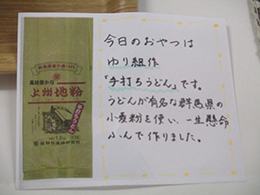 上州地粉
今日のおやつは
ゆり組作
「手打ちうどん」です。
うどんが有名な群馬県の
小麦粉を使い、一生懸命
ふんで作りました。